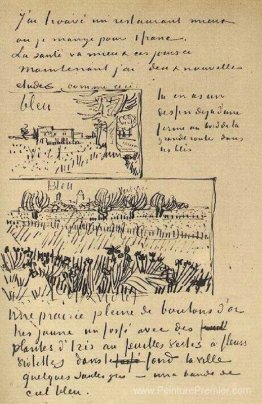 J'ai trouvé un restaurant mieux
où je mange pour 1 franc.
La santé va mieux ces jours ci
Maintenant j'ai deux nouvelles
études comme ceci
bleu
Tu en as un
dessin déjà d'une
ferme au bord de la
grande route dans
les blés
Bleu
Une prairie pleine de boutons d'or
très jaune un fossé avec des
plantes d'iris au feuilles vertes à fleurs
violettes dans le fond la ville
quelques saules gris – une bande de
ciel bleu.
www.PeinturePremier.com